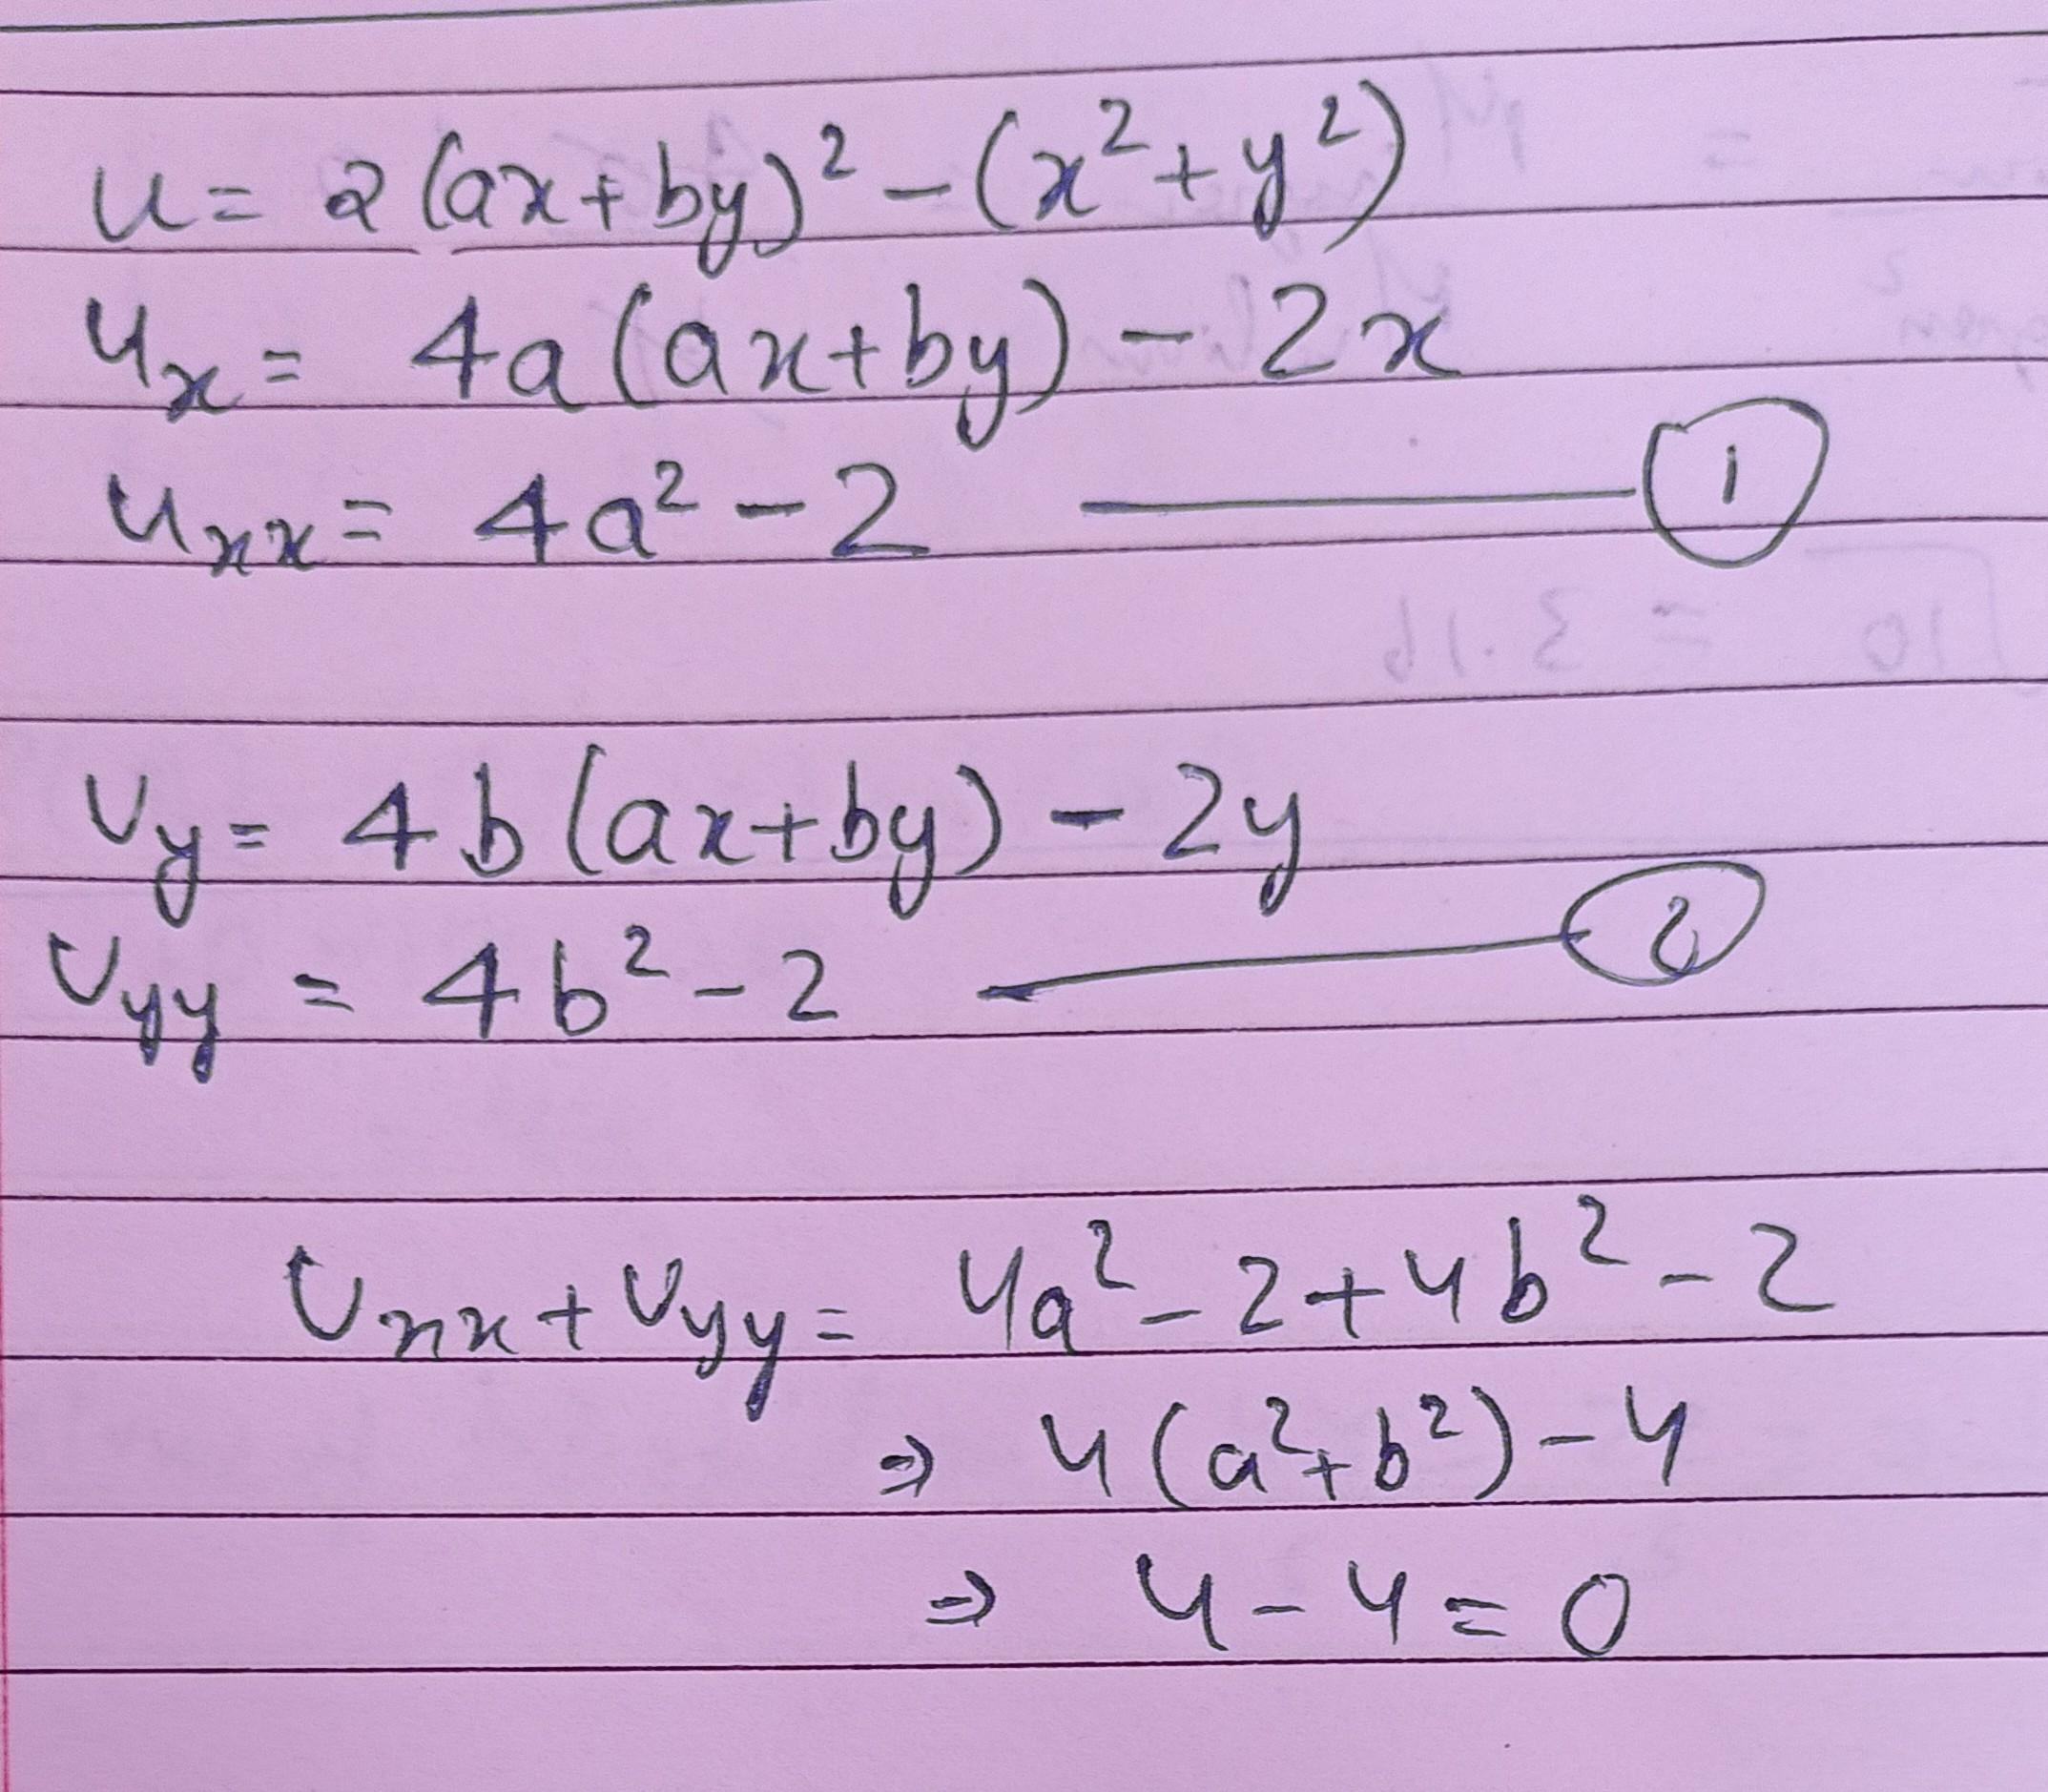 u = 2(ax+by)² - (x²+y²)
uₓ = 4a(ax+by) - 2x
uₓₓ = 4a² - 2 ——— ①
Uy = 4b(ax+by) - 2y
Uyy = 4b² - 2 ——— ②
Uxx + Uyy = 4a² - 2 + 4b² - 2
⇒ 4(a²+b²) - 4
⇒ 4 - 4 = 0